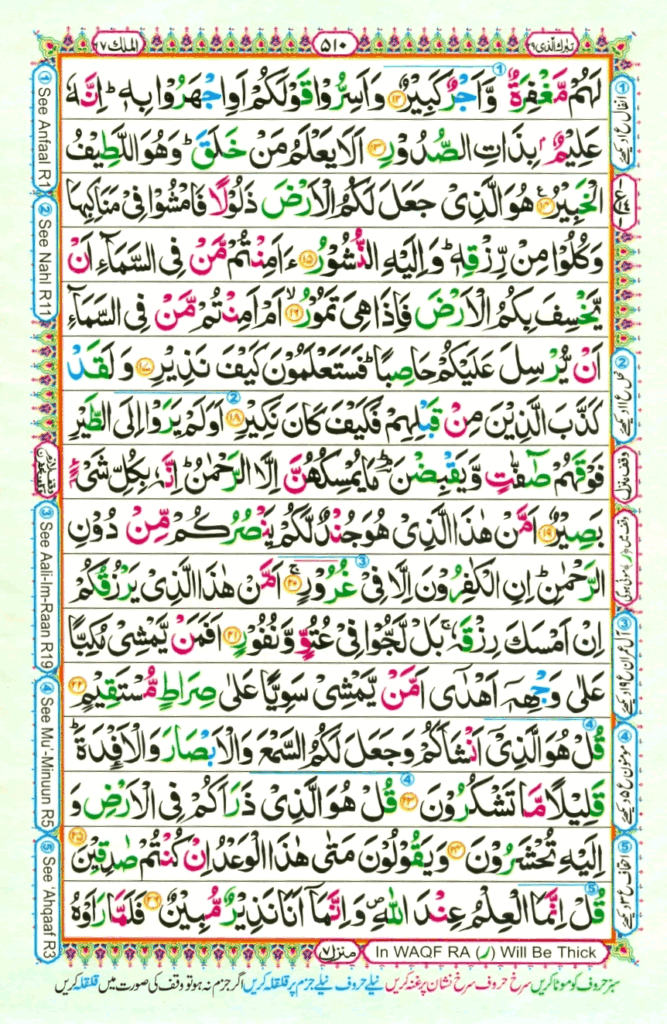 تبارك الذى ٢٩
٥١٠
الملك ٦٧
لَهُمْ مَّغْفِرَةٌ وَّاَجْرٌ كَبِيْرٌ ﴿۱۲﴾ وَاَسِرُّوْا قَوْلَكُمْ اَوِاجْهَرُوْا بِهٖ ؕ اِنَّهٗ
عَلِيْمٌۢ بِذَاتِ الصُّدُوْرِ ﴿۱۳﴾ اَلَا يَعْلَمُ مَنْ خَلَقَ ؕ وَهُوَ اللَّطِيْفُ
الْخَبِيْرُ ﴿۱۴﴾ هُوَ الَّذِىْ جَعَلَ لَكُمُ الْاَرْضَ ذَلُوْلًا فَامْشُوْا فِىْ مَنَاكِبِهَا
وَكُلُوْا مِنْ رِّزْقِهٖ ؕ وَاِلَيْهِ النُّشُوْرُ ﴿۱۵﴾ ءَاَمِنْتُمْ مَّنْ فِى السَّمَآءِ اَنْ
يَّخْسِفَ بِكُمُ الْاَرْضَ فَاِذَا هِىَ تَمُوْرُ ۙ﴿۱۶﴾ اَمْ اَمِنْتُمْ مَّنْ فِى السَّمَآءِ
اَنْ يُّرْسِلَ عَلَيْكُمْ حَاصِبًا ؕ فَسَتَعْلَمُوْنَ كَيْفَ نَذِيْرِ ﴿۱۷﴾ وَلَقَدْ
كَذَّبَ الَّذِيْنَ مِنْ قَبْلِهِمْ فَكَيْفَ كَانَ نَكِيْرِ ﴿۱۸﴾ اَوَلَمْ يَرَوْا اِلَى الطَّيْرِ
فَوْقَهُمْ صٰٓفّٰتٍ وَّيَقْبِضْنَ ؔۘ مَا يُمْسِكُهُنَّ اِلَّا الرَّحْمٰنُ ؕ اِنَّهٗ بِكُلِّ شَىْءٍۢ
بَصِيْرٌ ﴿۱۹﴾ اَمَّنْ هٰذَا الَّذِىْ هُوَ جُنْدٌ لَّكُمْ يَنْصُرُكُمْ مِّنْ دُوْنِ
الرَّحْمٰنِ ؕ اِنِ الْكٰفِرُوْنَ اِلَّا فِىْ غُرُوْرٍ ۚ﴿۲۰﴾ اَمَّنْ هٰذَا الَّذِىْ يَرْزُقُكُمْ
اِنْ اَمْسَكَ رِزْقَهٗ ۚ بَلْ لَّجُّوْا فِىْ عُتُوٍّ وَّنُفُوْرٍ ﴿۲۱﴾ اَفَمَنْ يَّمْشِىْ مُكِبًّا
عَلٰى وَجْهِهٖۤ اَهْدٰٓى اَمَّنْ يَّمْشِىْ سَوِيًّا عَلٰى صِرَاطٍ مُّسْتَقِيْمٍ ﴿۲۲﴾
قُلْ هُوَ الَّذِىْۤ اَنْشَاَكُمْ وَجَعَلَ لَكُمُ السَّمْعَ وَالْاَبْصَارَ وَالْاَفْـِٕدَةَ ؕ
قَلِيْلًا مَّا تَشْكُرُوْنَ ﴿۲۳﴾ قُلْ هُوَ الَّذِىْ ذَرَاَكُمْ فِى الْاَرْضِ وَ
اِلَيْهِ تُحْشَرُوْنَ ﴿۲۴﴾ وَيَقُوْلُوْنَ مَتٰى هٰذَا الْوَعْدُ اِنْ كُنْتُمْ صٰدِقِيْنَ ﴿۲۵﴾
قُلْ اِنَّمَا الْعِلْمُ عِنْدَ اللّٰهِ ۪ وَاِنَّمَاۤ اَنَا نَذِيْرٌ مُّبِيْنٌ ﴿۲۶﴾ فَلَمَّا رَاَوْهُ
① See Anfaal R1
② See Nahl R11
③ See Aali-Im-Raan R19
④ See Mu'-Minuun R5
⑤ See 'Ahqaaf R3
منزل ۷
In WAQF RA (ر) Will Be Thick
سبز حروف کو موٹا کریں سرخ حروف سرخ نشان پر غنہ کریں نیلے حروف نیلے جزم پر قلقلہ کریں اگر جزم نہ ہو تو وقف کی صورت میں قلقلہ کریں